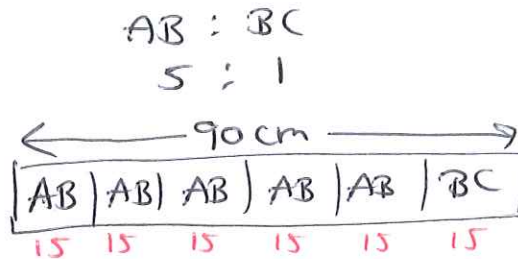 AB : BC
5 : 1
90cm
AB AB AB AB AB BC
15 15 15 15 15 15